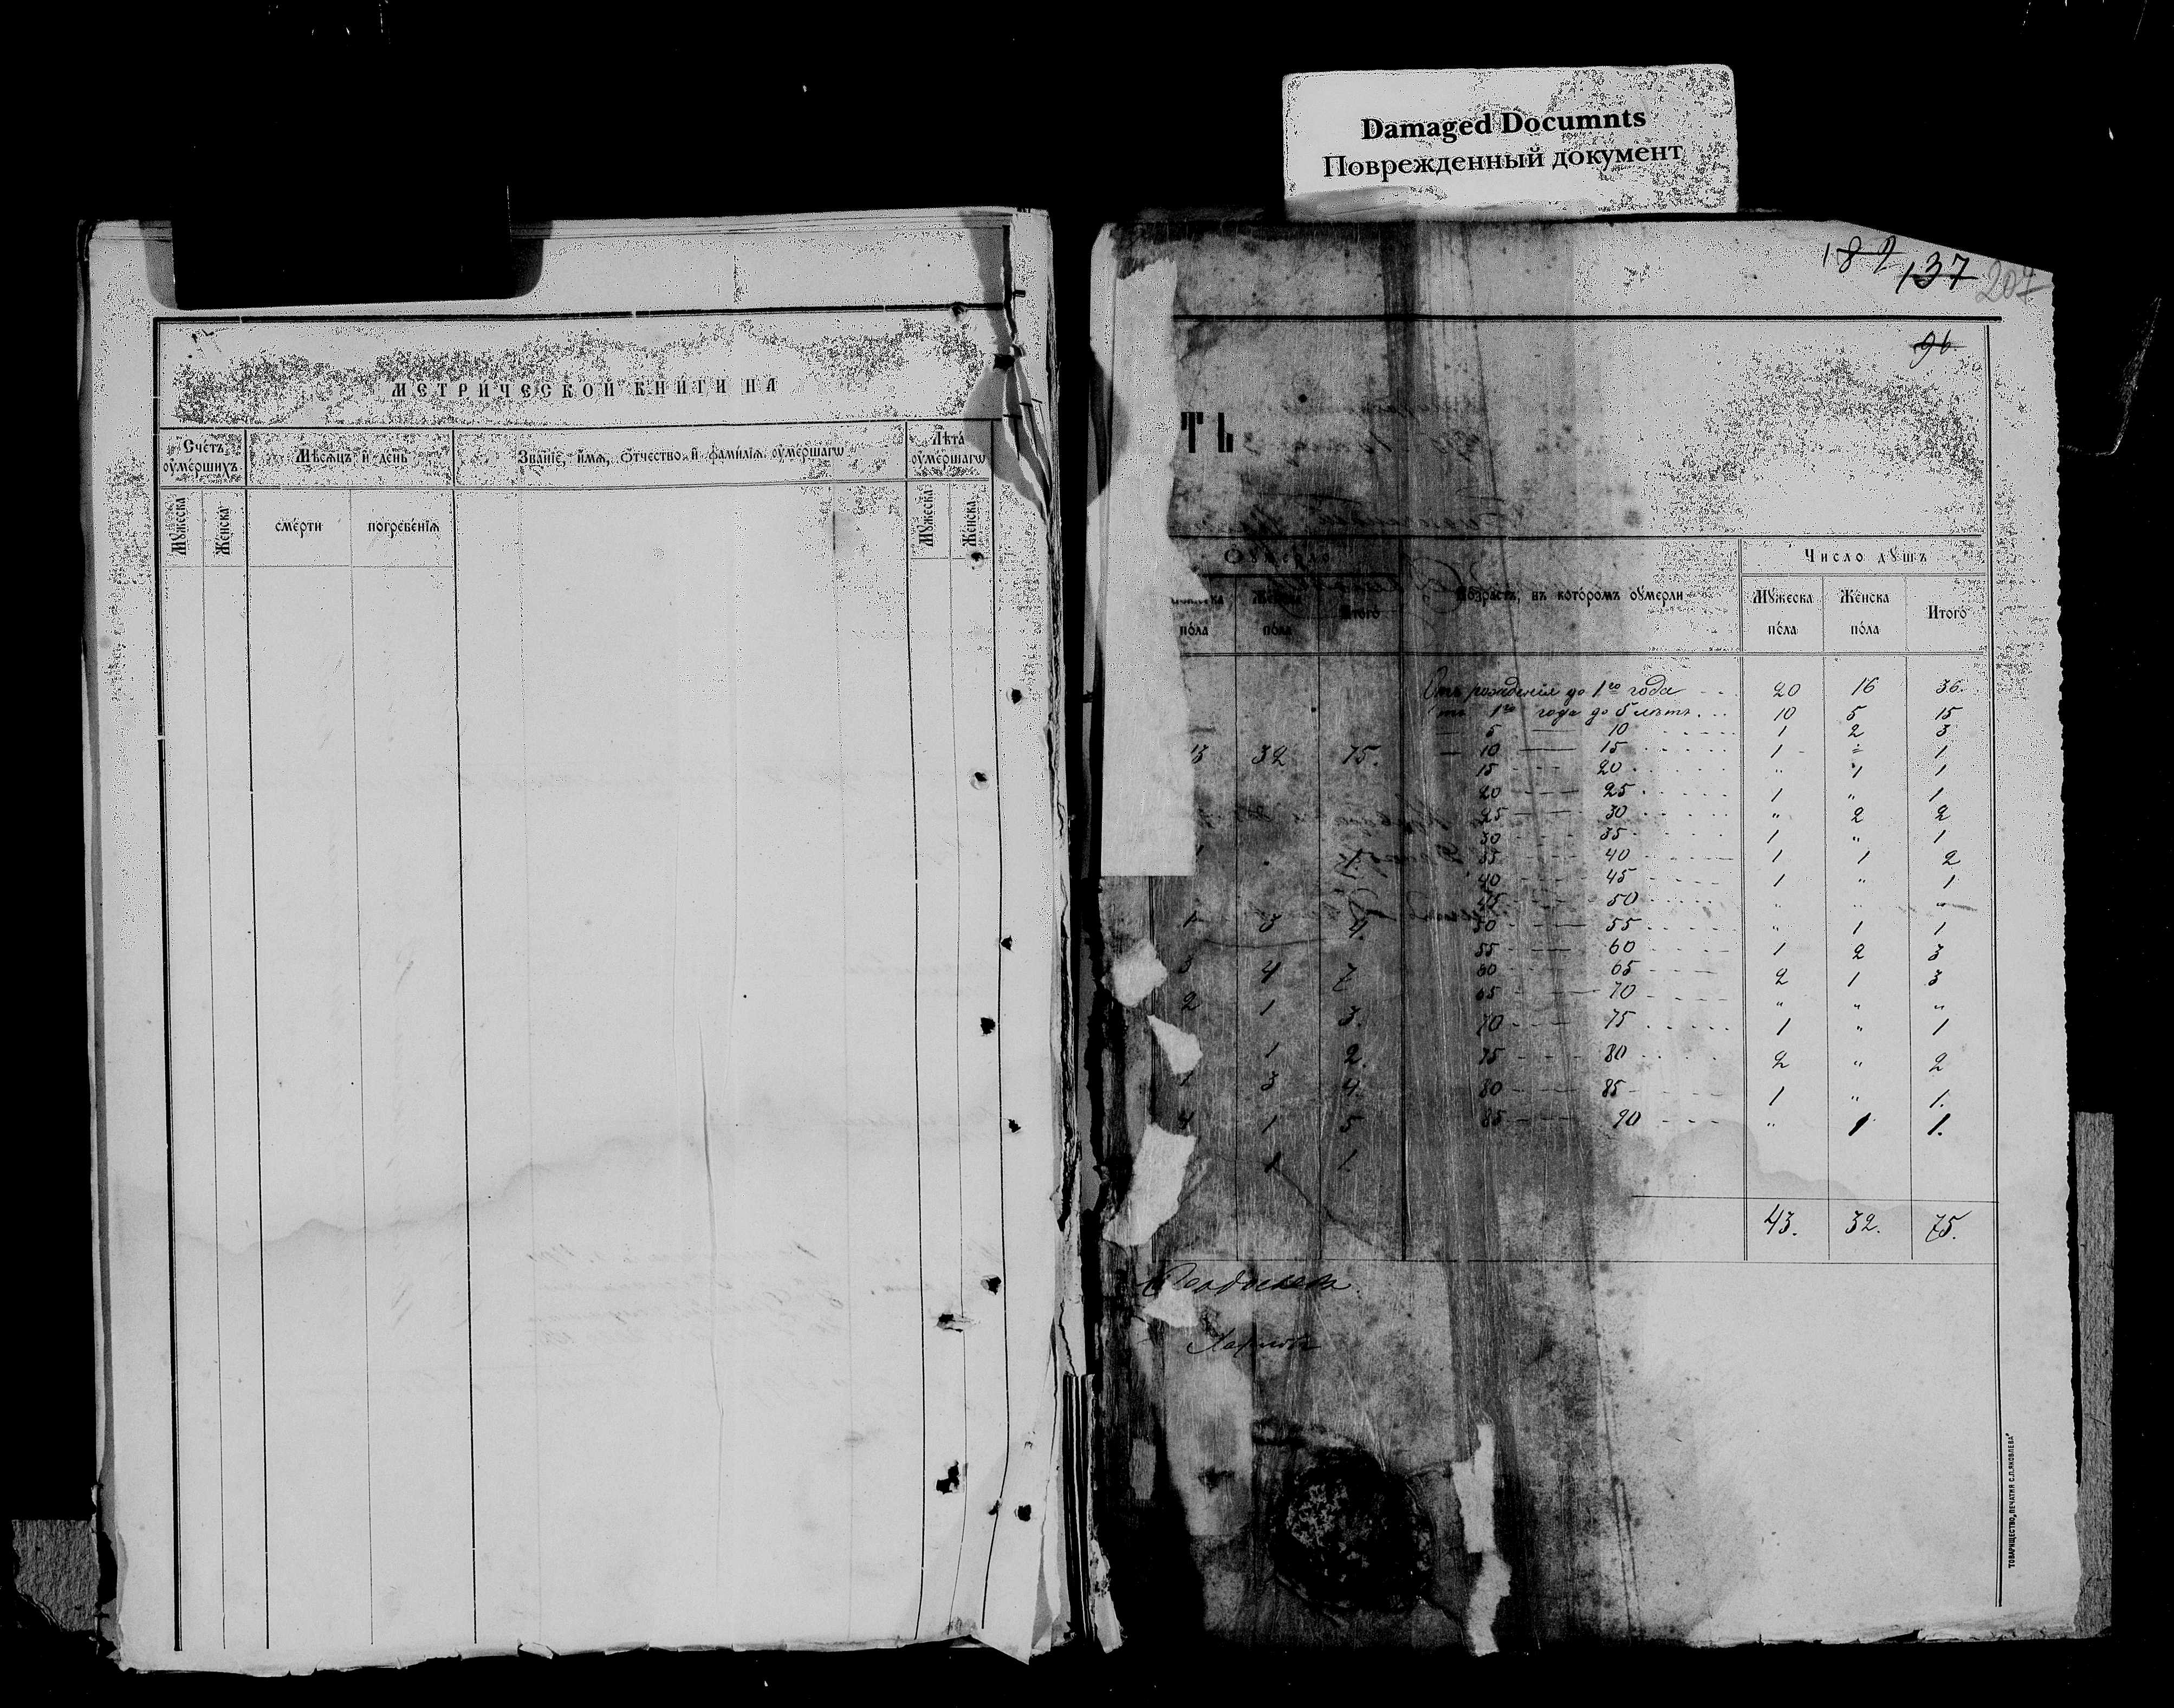 Damaged Documnts
Поврежденный документ
189 137 207
96.
МЕТРИЧЕСКОЙ КНИГИ НА
Счетъ оумершихъ Мѣсяцъ и день Званіе, имя, отчество и фамилія оумершагω Лѣта оумершагω
Мꙋжеска Женска смерти погребенія Мꙋжеска Женска
ТЬ
Оумерло Возрастъ, въ которомъ оумерли Число дꙋшъ
пола Женска пола Итого Мꙋжеска пола Женска пола Итого
Отъ рожденія до 1го года 20 16 36.
1го года до 5 лѣтъ 10 5 15
5 — 10 1 2 3
32 75. — 10 — 15 1 " 1
15 — 20 " 1 1
20 — 25 1 " 1
25 — 30 " 2 2
30 — 35 1 " 1
35 — 40 1 1 2
40 — 45 1 " 1
45 — 50 " " "
1 3 4. 50 — 55 " 1 1
55 — 60 1 2 3
3 4 7 60 — 65 2 1 3
65 — 70 " " "
2 1 3. 70 — 75 1 " 1
1 2. 75 — 80 2 " 2
1 3 4. 80 — 85 1 " 1.
4 1 5 85 — 90 " 1 1.
1 1
43. 32. 75.
ТОВАРИЩЕСТВО „ПЕЧАТНЯ С.П.ЯКОВЛЕВА"